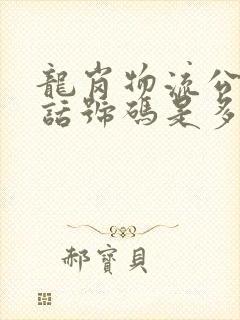 龍肖物流公
話號碼是多
郝寶貝